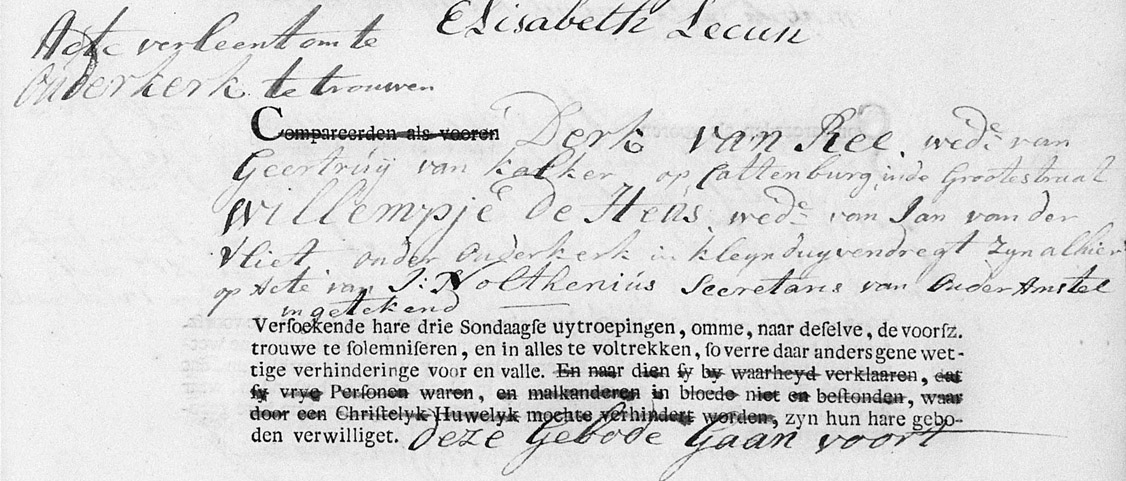 ELisabeth Lecun
Acte verleent om te
Ouderkerk te trouwen
Compareerden als vooren Derk van Ree. wedr. van
Geertruij van Kalker, op Cattenburg, inde Grootestraat
Willempje De Hens wede. van Jan van der
Vliet onder Ouderkerk in kleynduyvendregt Zyn alhier
op Acte van J: Nolthenius Secretaris van Ouder Amstel
ingetekend
Verſoekende hare drie Sondaagſe uytroepingen, omme, naar deſelve, de voorſz.
trouwe te ſolemniſeren, en in alles te voltrekken, ſo verre daar anders gene wet-
tige verhinderinge voor en valle. En naar dien ſy by waarheyd verklaaren, dat
ſy vrye Perſonen waren, en malkanderen in bloede niet en beſtonden, waar
door een Chriſtelyk Huwelyk mochte verhindert worden, zyn hun hare gebo-
den verwilliget. deze Gebode Gaan voort